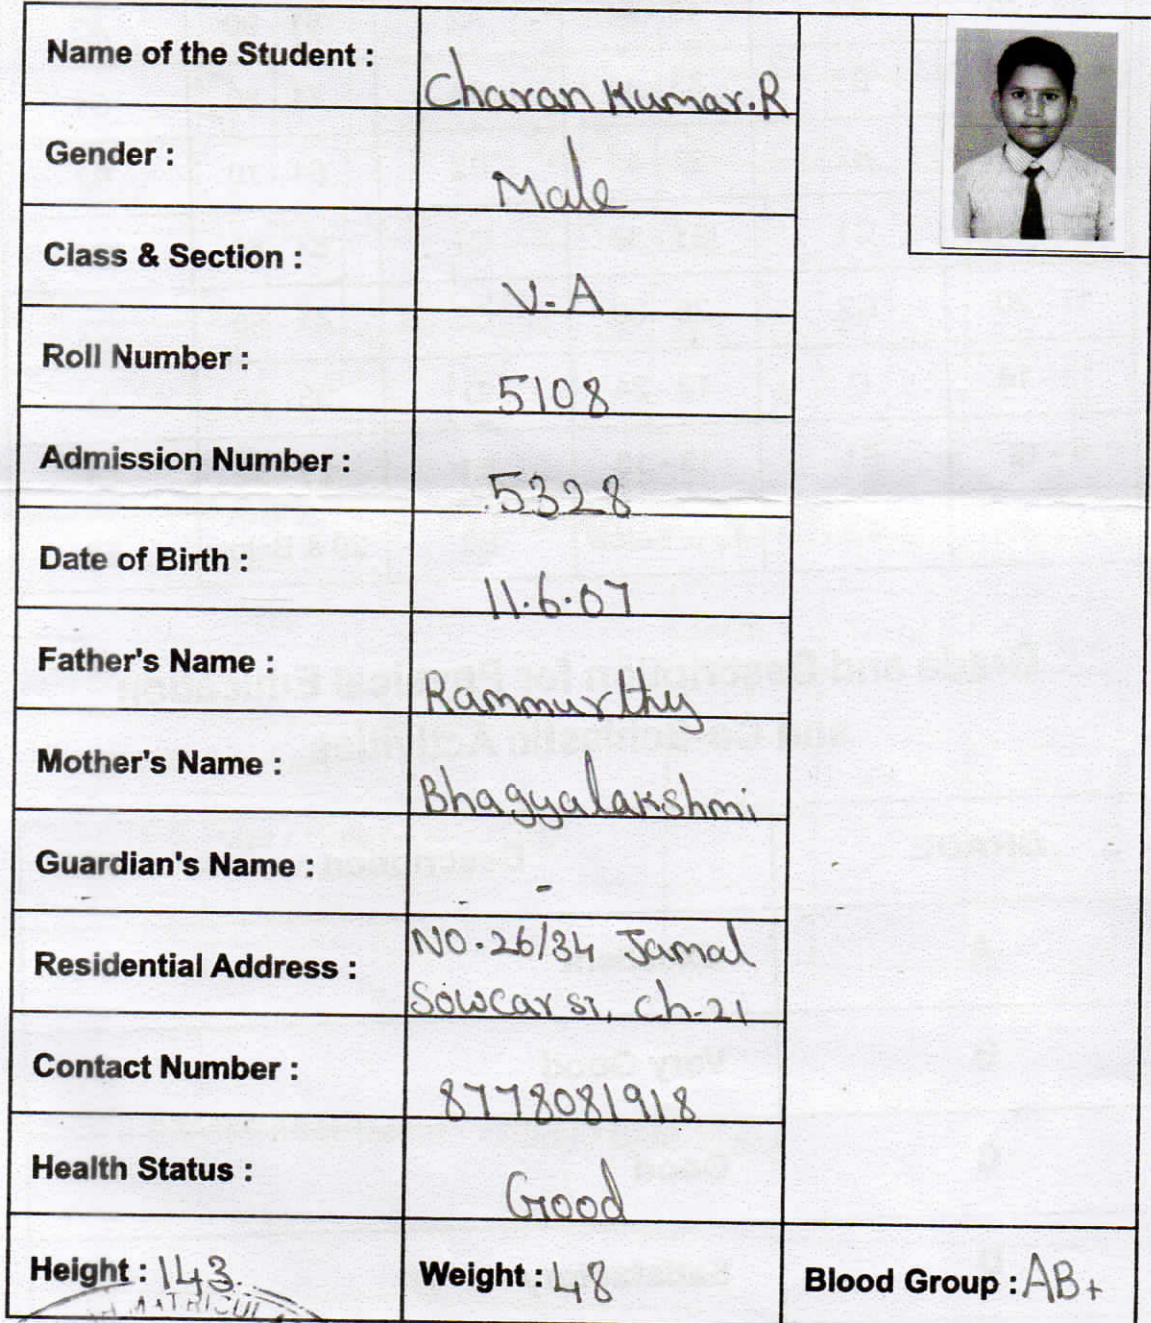 Name of the Student :
Charan Kumar.R
Gender :
Male
Class & Section :
V-A
Roll Number :
5108
Admission Number :
5328
Date of Birth :
11.6.07
Father's Name :
Rammurthy
Mother's Name :
Bhagyalakshmi
Guardian's Name :
-
Residential Address :
NO.26/34 Jamal
Sowcar st, ch-21
Contact Number :
8778081918
Health Status :
Good
Height : 143 Weight : 48 Blood Group : AB+
MATRICUL